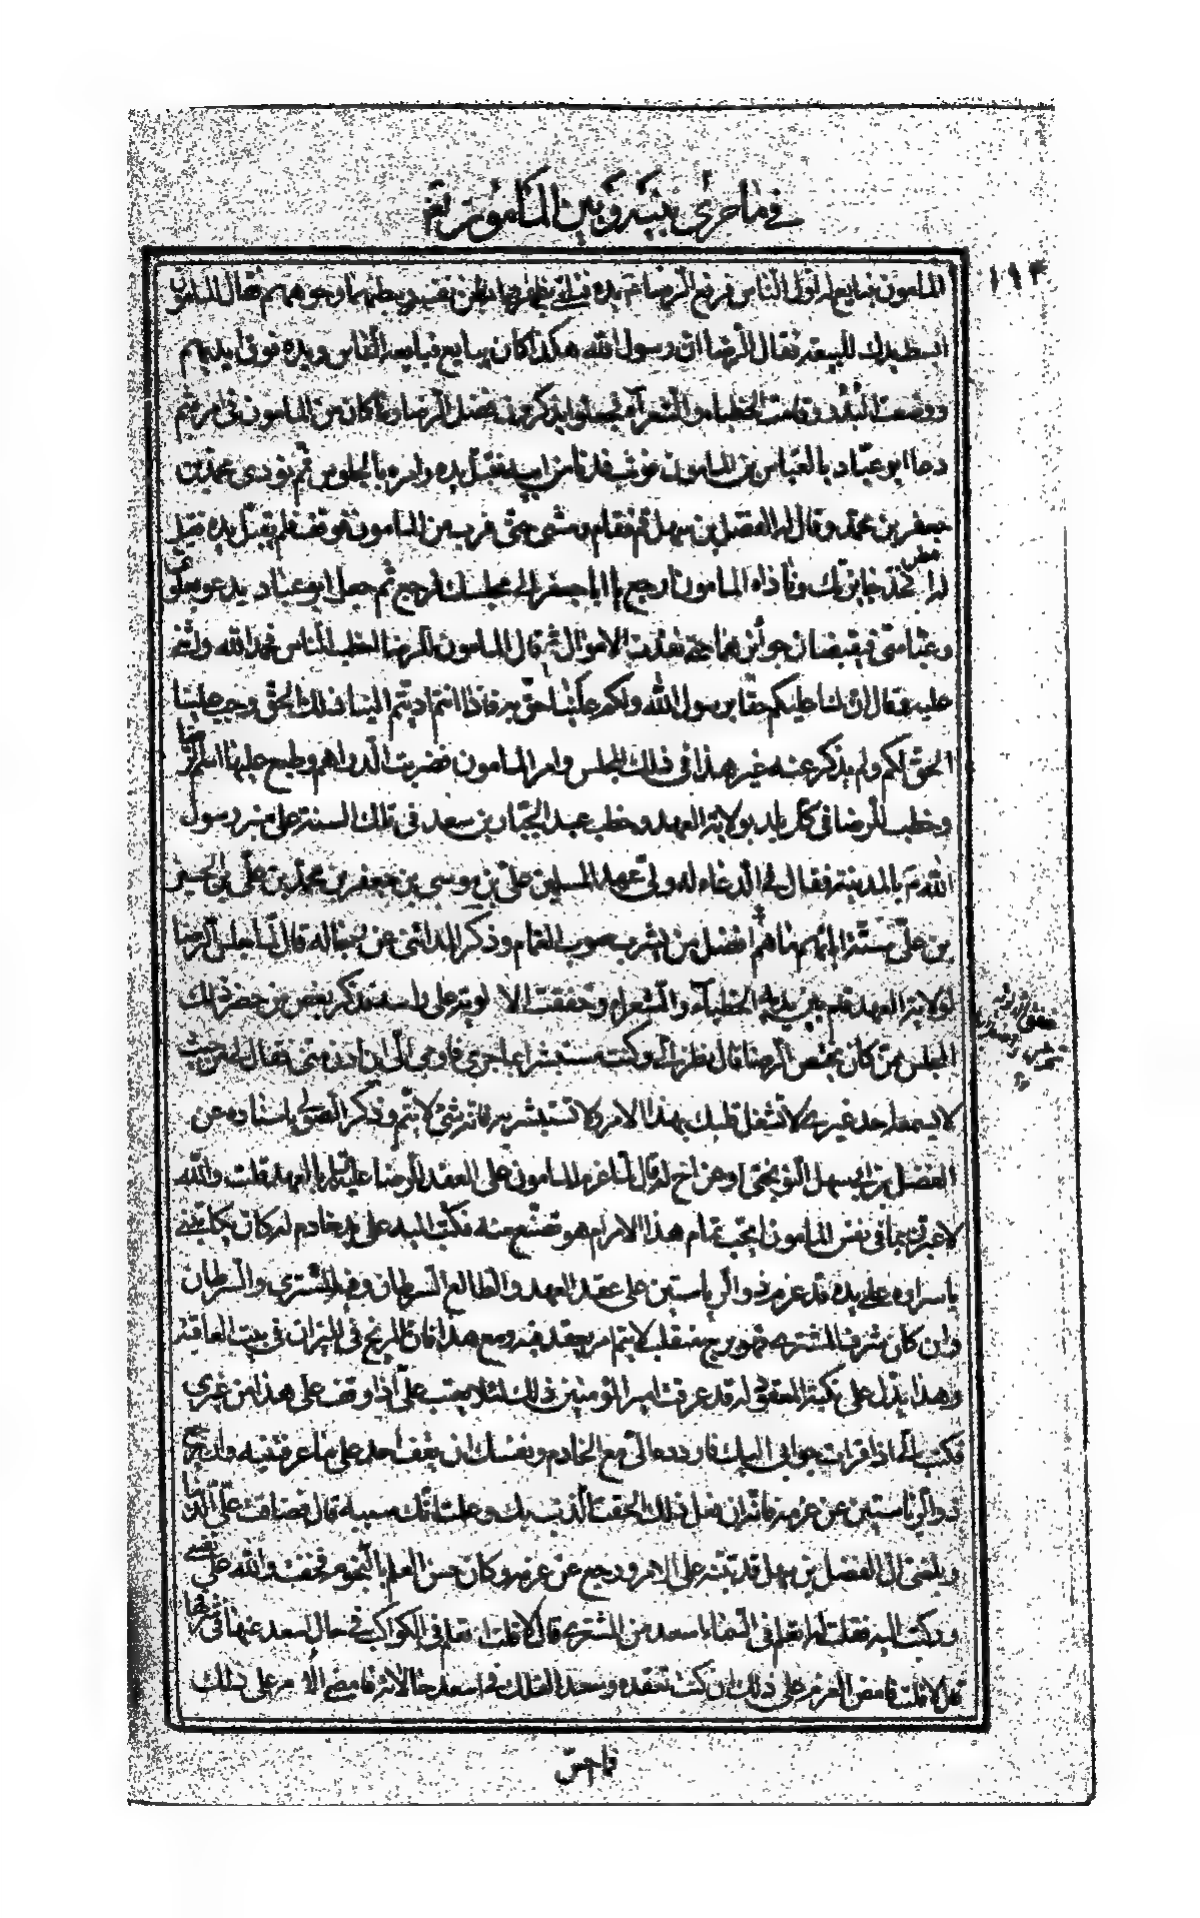 في ما جرى بينه وبين المأمون
١١٣
المأمون فبايع له اول الناس فرفع الرضا يده فتلقى بظهرها نفسه وببطنها وجوههم فقال المامون
ابسط يدك للبيعة فقال الرضا ان رسول الله هكذا كان يبايع فبايعه الناس ويده فوق ايديهم
ووضعت البدر وقامت الخطباء والشعراء فجعلوا يذكرون فضل الرضا وما كان من المامون في امره ثم
دعا ابو عباد بالعباس بن المامون فوثب فدنا من ابيه فقبل يده وامره بالجلوس ثم نودى محمد بن
جعفر بن محمد وقال له الفضل بن سهل قم فقام ومشى حتى قرب من المامون فوقف فلم يقبل يده فقيل
له امض فخذ جائزتك وناداه المامون ارجع يا ابا جعفر الى مجلسك فرجع ثم جعل ابو عباد يدعو بعلوى
وعباسى فيقبضان جوائزهما حتى نفدت الاموال ثم قال المامون للرضا اخطب الناس فحمد الله واثنى
عليه وقال ان لنا عليكم حقا برسول الله ولكم علينا حق به فاذا انتم اديتم الينا ذلك الحق وجب علينا
الحق لكم ولم يذكر عنه غير هذا في ذلك المجلس وامر المامون فضربت الدراهم وطبع عليها اسم الرضا
وخطب للرضا في كل بلد بولاية العهد وخطب عبد الجبار بن سعد في تلك السنة على منبر رسول
الله بالمدينة فقال في الدعاء له ولى عهد المسلمين على بن موسى بن جعفر بن محمد بن على بن الحسين
بن على ستة اباؤهم ما هم افضل من يشرب صوب الغمام وذكر المدائنى عن رجاله قال لما جلس الرضا
لولاية العهد قام بين يديه الخطباء والشعراء وخفقت الالوية على راسه فذكر بعض من حضر ذلك
المجلس ممن كان يختص الرضا قال نظر الى وكنت مستبشرا بما جرى فاومى الى ان ادن منى فقال لى من حيث
لا يسمعه احد غيرى لا تشغل قلبك بهذا الامر ولا تستبشر به فانه شئ لا يتم وذكر الصولى باسناده عن
الفضل بن ابى سهل النوبختى او عن اخ له قال لما عزم المامون على العقد للرضا بالعهد قلت والله
لاعتبرن بما في نفس المامون ايحب تمام هذا الامر ام هو تصنع منه فكتبت اليه على يد خادم له كان يكاتبنى
باسراره على يده قد عزم ذو الرياستين على عقد العهد والطالع السرطان وفيه المشترى والسرطان
وان كان شرف المشترى فهو برج منقلب لا يتم امر يعقد فيه ومع هذا فان المريخ في الميزان في بيت العاقبة
وهذا يدل على نكبة المعقود له قد عرفت امير المؤمنين ذلك لئلا يعتب على اذا وقف على هذا من غيرى
فكتب الى اذا قرات جوابى اليك فاردده الى مع الخادم ونفسك ان يقف احد على ما عرفتنيه وان يرجع
ذو الرياستين عن عزمه فانه ان فعل ذلك الحقت الذنب بك وعلمت انك سببه قال فضاقت على الدنيا
وبلغنى ان الفضل بن سهل قد تنبه على الامر ورجع عن عزمه وكان حسن العلم بالنجوم فخفت والله على نفسى
وركبت اليه فقلت له اتعلم في السماء اسعد من المشترى قال لا قلت افتعلم في الكواكب في حال اسعد منها في شرفها
قال لا قلت فامض العزم على ذلك ان كنت تعقده وسعد الفلك في اسعد حالاته فامضى الامر على ذلك
فاحس